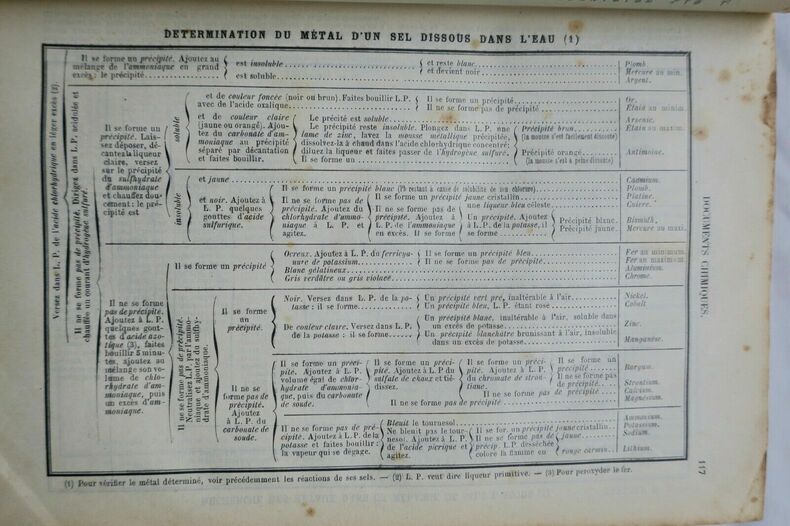 DETERMINATION DU MÉTAL D'UN SEL DISSOUS DANS L'EAU (1)
Versez dans L. P. de l'acide chlorhydrique en léger excès (2)
Il se forme un précipité. Ajoutez au
mélange de l'ammoniaque en grand
excès : le précipité
est insoluble
est soluble
et reste blanc
et devient noir
Plomb.
Mercure au min.
Argent.
Il ne se forme pas de précipité. Dirigez dans L. P. acidulée et
chauffée un courant d'hydrogène sulfuré.
Il se forme un
précipité. Lais-
sez déposer, dé-
cantez la liqueur
claire, versez
sur le précipité
du sulfhydrate
d'ammoniaque
et chauffez dou-
cement : le pré-
cipité est
soluble
et de couleur foncée (noir ou brun). Faites bouillir L. P.
avec de l'acide oxalique
Il se forme un précipité
Il ne se forme pas de précipité
Or.
Étain au minim.
et de couleur claire
(jaune ou orangé). Ajou-
tez du carbonate d'am-
moniaque au précipité
séparé par décantation
et faites bouillir.
Le précité est soluble
Le précipité reste insoluble. Plongez dans L. P. une
lame de zinc, lavez la mousse métallique précipitée,
dissolvez-la à chaud dans l'acide chlorhydrique concentré;
diluez la liqueur et faites passer de l'hydrogène sulfuré.
Il se forme un
Précipité brun
(la mousse s'est facilement dissoute)
Précipité orangé
(la mousse s'est à peine dissoute)
Arsenic.
Étain au maxim.
Antimoine.
insoluble
et jaune
et noir. Ajoutez à
L. P. quelques
gouttes d'acide
sulfurique.
Il se forme un précipité blanc (Pb restant à cause de solubilité de son chlorure)
Il ne se forme pas de
précipité. Ajoutez du
chlorhydrate d'ammo-
niaque à L. P. et
agitez.
Il se forme un précipité jaune cristallin
Il ne se forme pas de
précipité. Ajoutez à
L. P. de l'ammoniaque
en excès. Il se forme
une liqueur bleu céleste
Un précipité. Ajoutez
à L. P. de la potasse, il
se forme
Précipité blanc.
Précipité jaune.
Cadmium.
Plomb.
Platine.
Cuivre.
Bismuth.
Mercure au maxi.
Il ne se forme
pas de précipité.
Ajoutez à L. P.
quelques gout-
tes d'acide azo-
tique (3), faites
bouillir 5 minu-
tes, ajoutez au
mélange son vo-
lume de chlo-
rhydrate d'am-
moniaque, puis
un excès d'am-
moniaque.
Il se forme un précipité
Ocreux. Ajoutez à L. P. du ferricya-
nure de potassium.
Blanc gélatineux
Gris verdâtre ou gris violacé
Il se forme un précipité bleu
Il ne se forme pas de précipité
Fer au minimum.
Fer au maximum.
Aluminium.
Chrome.
Il ne se forme pas de précipité.
Neutralisez L. P. par l'ammo-
niaque et ajoutez du sulfhy-
drate d'ammoniaque.
Il se forme un
précipité.
Noir. Versez dans L. P. de la po-
tasse : il se forme
De couleur claire. Versez dans L. P.
de la potasse : il se forme
Un précipité vert pré, inaltérable à l'air
Un précipité bleu, L. P. étant rose
Un précipité blanc, inaltérable à l'air, soluble dans
un excès de potasse
Un précipité blanchâtre brunissant à l'air, insoluble
dans un excès de potasse
Nickel.
Cobalt
Zinc.
Manganèse.
Il ne se
forme pas de
précipité.
Ajoutez
à L. P. du
carbonate de
soude.
Il se forme un préci-
pité. Ajoutez à L. P. un
volume égal de chlor-
hydrate d'ammonia-
que, puis du carbonate
de soude.
Il se forme un préci-
pité. Ajoutez à L. P. du
sulfate de chaux et tié-
dissez.
Il se forme un préci-
pité. Ajoutez à L. P.
du chromate de stron-
tiane.
Il se forme un
précipité
Il ne se forme pas
de précipité
Il ne se forme pas de précipité
Il ne se forme pas de précipité
Baryum.
Strontium.
Calcium.
Magnésium.
Il ne se forme pas de pré-
cipité. Ajoutez à L. P. de la
potasse et faites bouillir :
la vapeur qui se dégage.
Bleuit le tournesol
Ne bleuit pas le tour-
nesol. Ajoutez à L. P.
de l'acide picrique et
agitez.
Il se for. un précipité jaune cristallin.
Il ne se forme pas de
précip. L.P. desséchée
colore la flamme en
jaune
rouge carmin
Ammonium.
Potassium.
Sodium.
Lithium.
(1) Pour vérifier le métal déterminé, voir précédemment les réactions de ses sels. — (2) L. P. veut dire liqueur primitive. — (3) Pour peroxyder le fer.
DOCUMENTS CHIMIQUES.
117